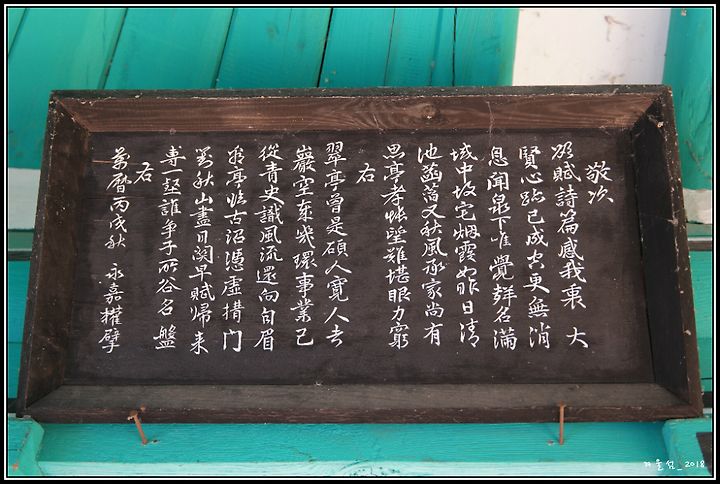 敬次
欲賦詩篇感我衷 大
賢心跡已成空更無消
息聞泉下唯覺名滿
域中故宅烟霞如昨日清
池菡萏又秋風承家尚有
思亭孝悵望難堪眼力窮
右
翠亭曾是碩人寬人去
巖空奈幾環事業已
從青史識風流還向白眉
看亭臨古沼憑虛門
對秋山盡日閑早賦歸來
專一壑誰爭子所谷名盤
右
萬曆丙戌秋 永嘉權擘
겨울섬_2018